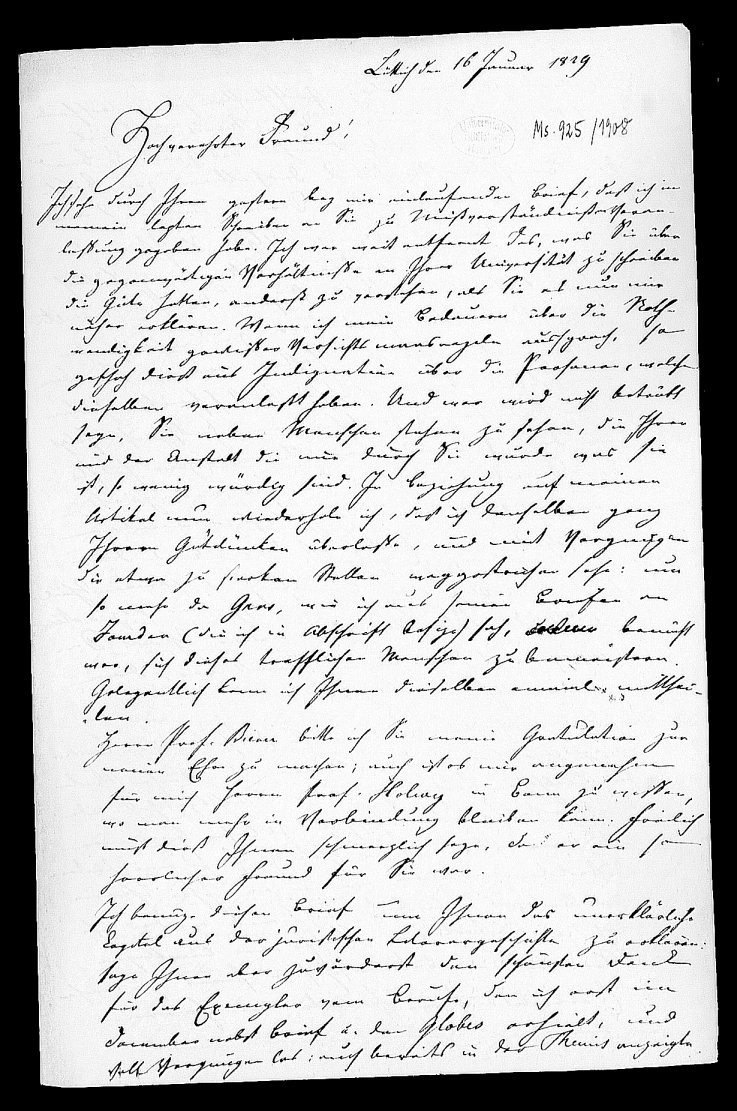 Lüttich den 16 Januar 1829
Ms. 925/1908
Hochverehrter Freund!
Ich sehe durch Ihren gestern bey mir einlaufenden Brief, daß ich in
meinem letzten Schreiben an Sie zu Mißverständnissen Veran-
lassung gegeben habe. Ich war weit entfernt das, was Sie über
die gegenwärtigen Verhältnisse an Ihrer Universität zu schreiben
die Güte hatten, anders zu verstehen, als Sie es nun mir
näher erklären. Wenn ich mein Bedauern über die Noth-
wendigkeit gewisser Vorsichtsmaasregeln aussprach, so
geschah dieß aus Indignation über die Personen, welche
dieselben veranlaßt haben. Und wer wird nicht betrübt
seyn, Sie neben Menschen stehen zu sehen, die Ihrer
und der Anstalt die nur durch Sie wurde was sie
ist, so wenig würdig sind. In Beziehung auf meinen
Artikel nun wiederhole ich, daß ich denselben ganz
Ihrem Gutdünken überlasse, und mit Vergnügen
die etwa zu starken Stellen weggestrichen sehe: um
so mehr da Gans, wie ich aus seinen Briefen an
(die ich in Abschrift besitze) sah, bemüht
war, sich dieses trefflichen Menschen zu bemeistern.
Gelegentlich kann ich Ihnen dieselben einmal mitthei-
len.
Herrn Prof. bitte ich Sie meine Gratulation zur
neuen Ehe zu machen; auch ist es mir angenehm
für mich Herrn Prof. Hollweg in Bonn zu wissen,
wo man mehr in Verbindung bleiben kann. Freilich
muß dieß Ihnen schmerzlich seyn, da er ein so
herrlicher Freund für Sie war.
Ich benuze diesen Brief um Ihnen das unerklärliche
Capitel aus der juristischen Literargeschichte zu erklären:
sage Ihnen aber zuvörderst den schönsten Dank
für das Exemplar vom Berufe, den ich erst im
December nebst Brief u. den Globes erhielt, und
voll Vergnügen las: auch bereits in der Themis anzeigte